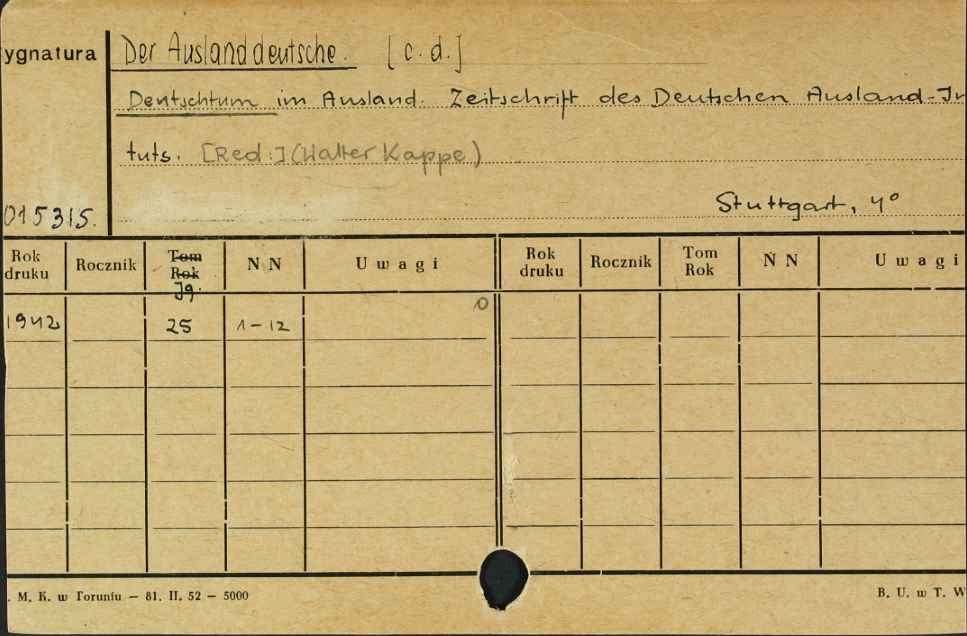 ygnatura Der Auslanddeutsche. [c.d.]
Deutschtum im Ausland. Zeitschrift des Deutschen Ausland-In
tuts. [Red.:] (Walter Kappe)
015315. Stuttgart, 4°
Rok druku Rocznik Tom Rok Jg. N N Uwagi Rok druku Rocznik Tom Rok N N Uwagi
1942 25 1-12 0
. M. K. w Toruniu — 81. II. 52 — 5000 B. U. w T. W